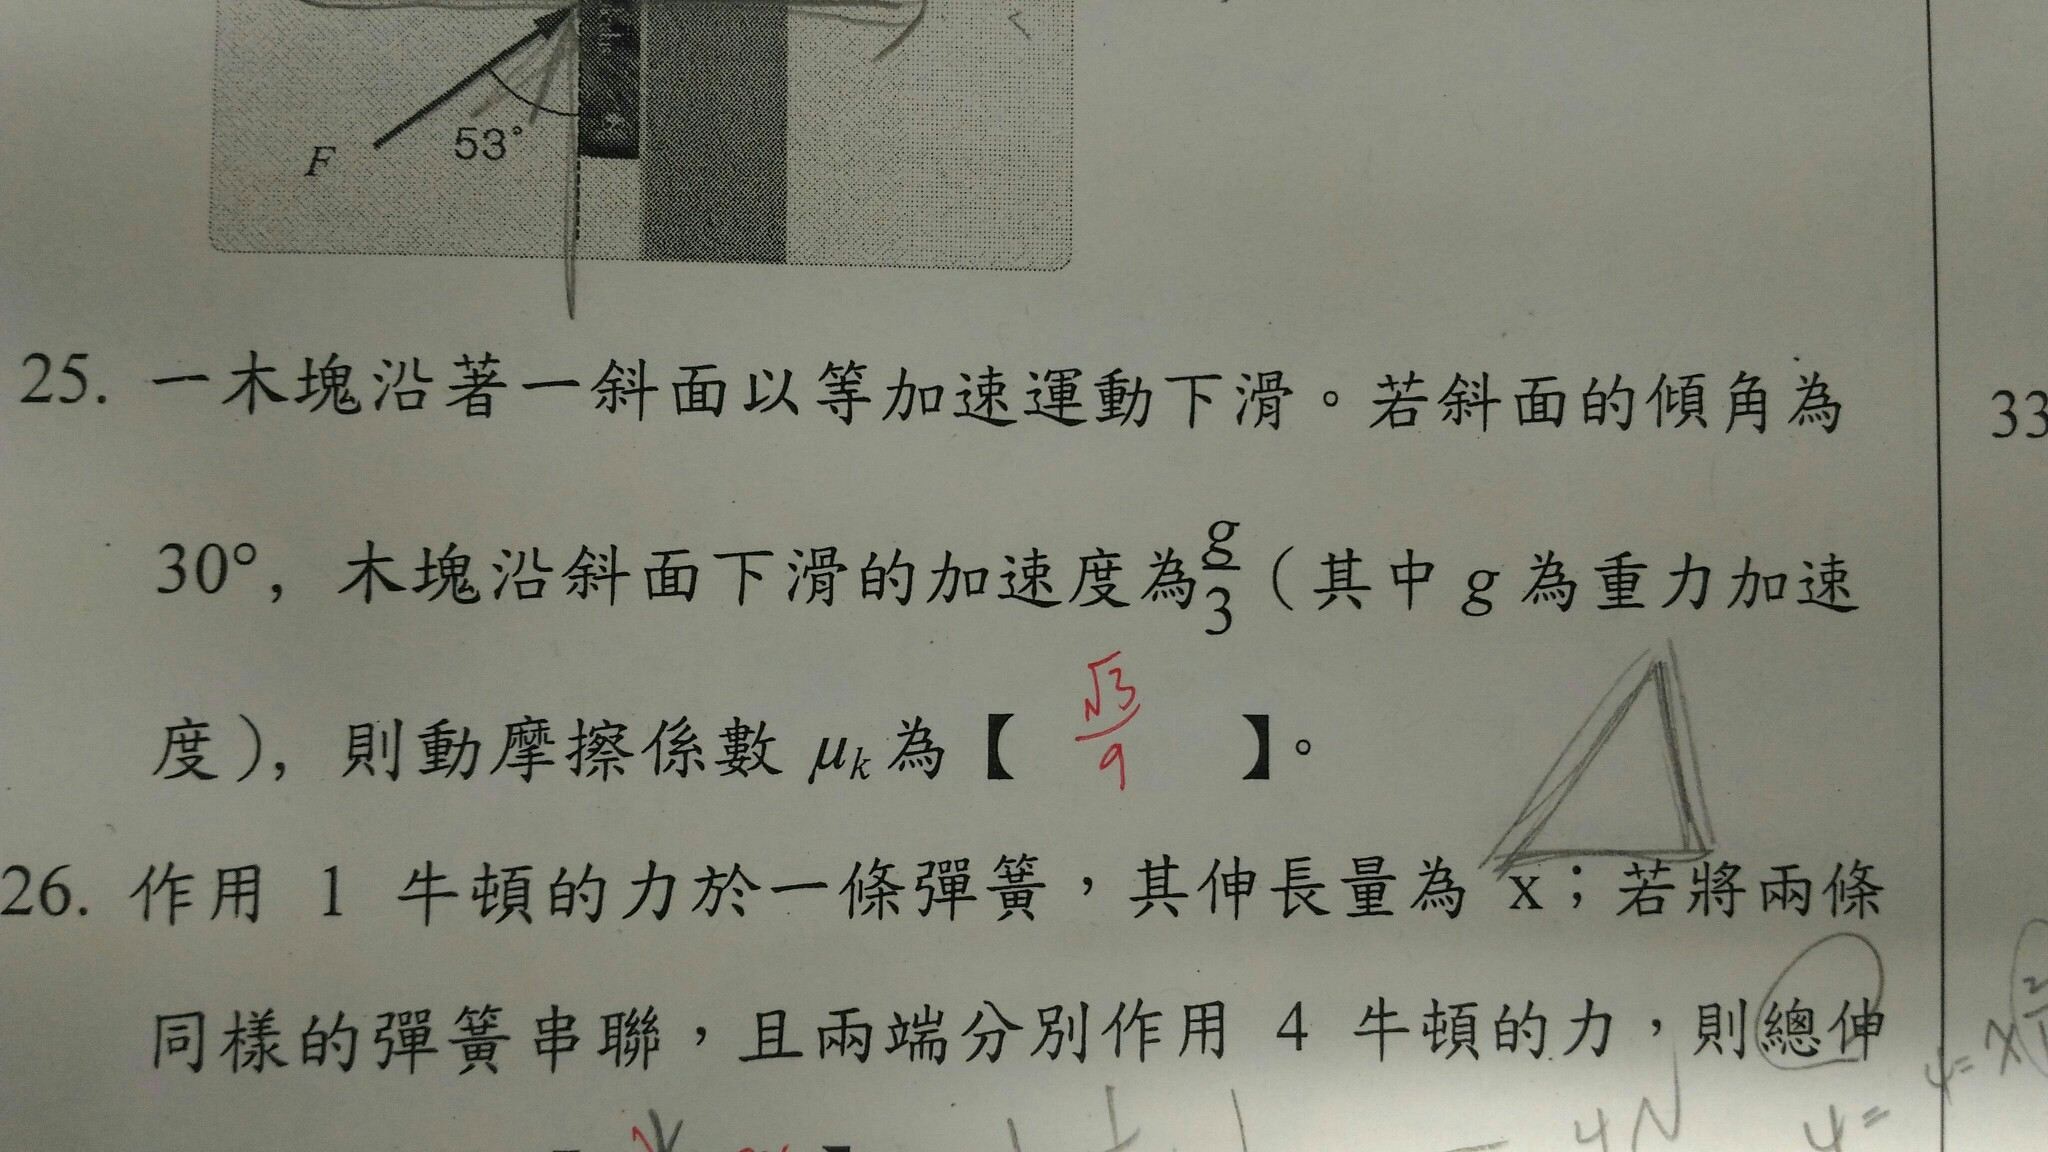 F
53°
25. 一木塊沿著一斜面以等加速運動下滑。若斜面的傾角為
30°，木塊沿斜面下滑的加速度為g/3（其中 g 為重力加速
度），則動摩擦係數 μk 為【 √3/9 】。
26. 作用 1 牛頓的力於一條彈簧，其伸長量為 x；若將兩條
同樣的彈簧串聯，且兩端分別作用 4 牛頓的力，則總伸
4N
4=
4=x
33